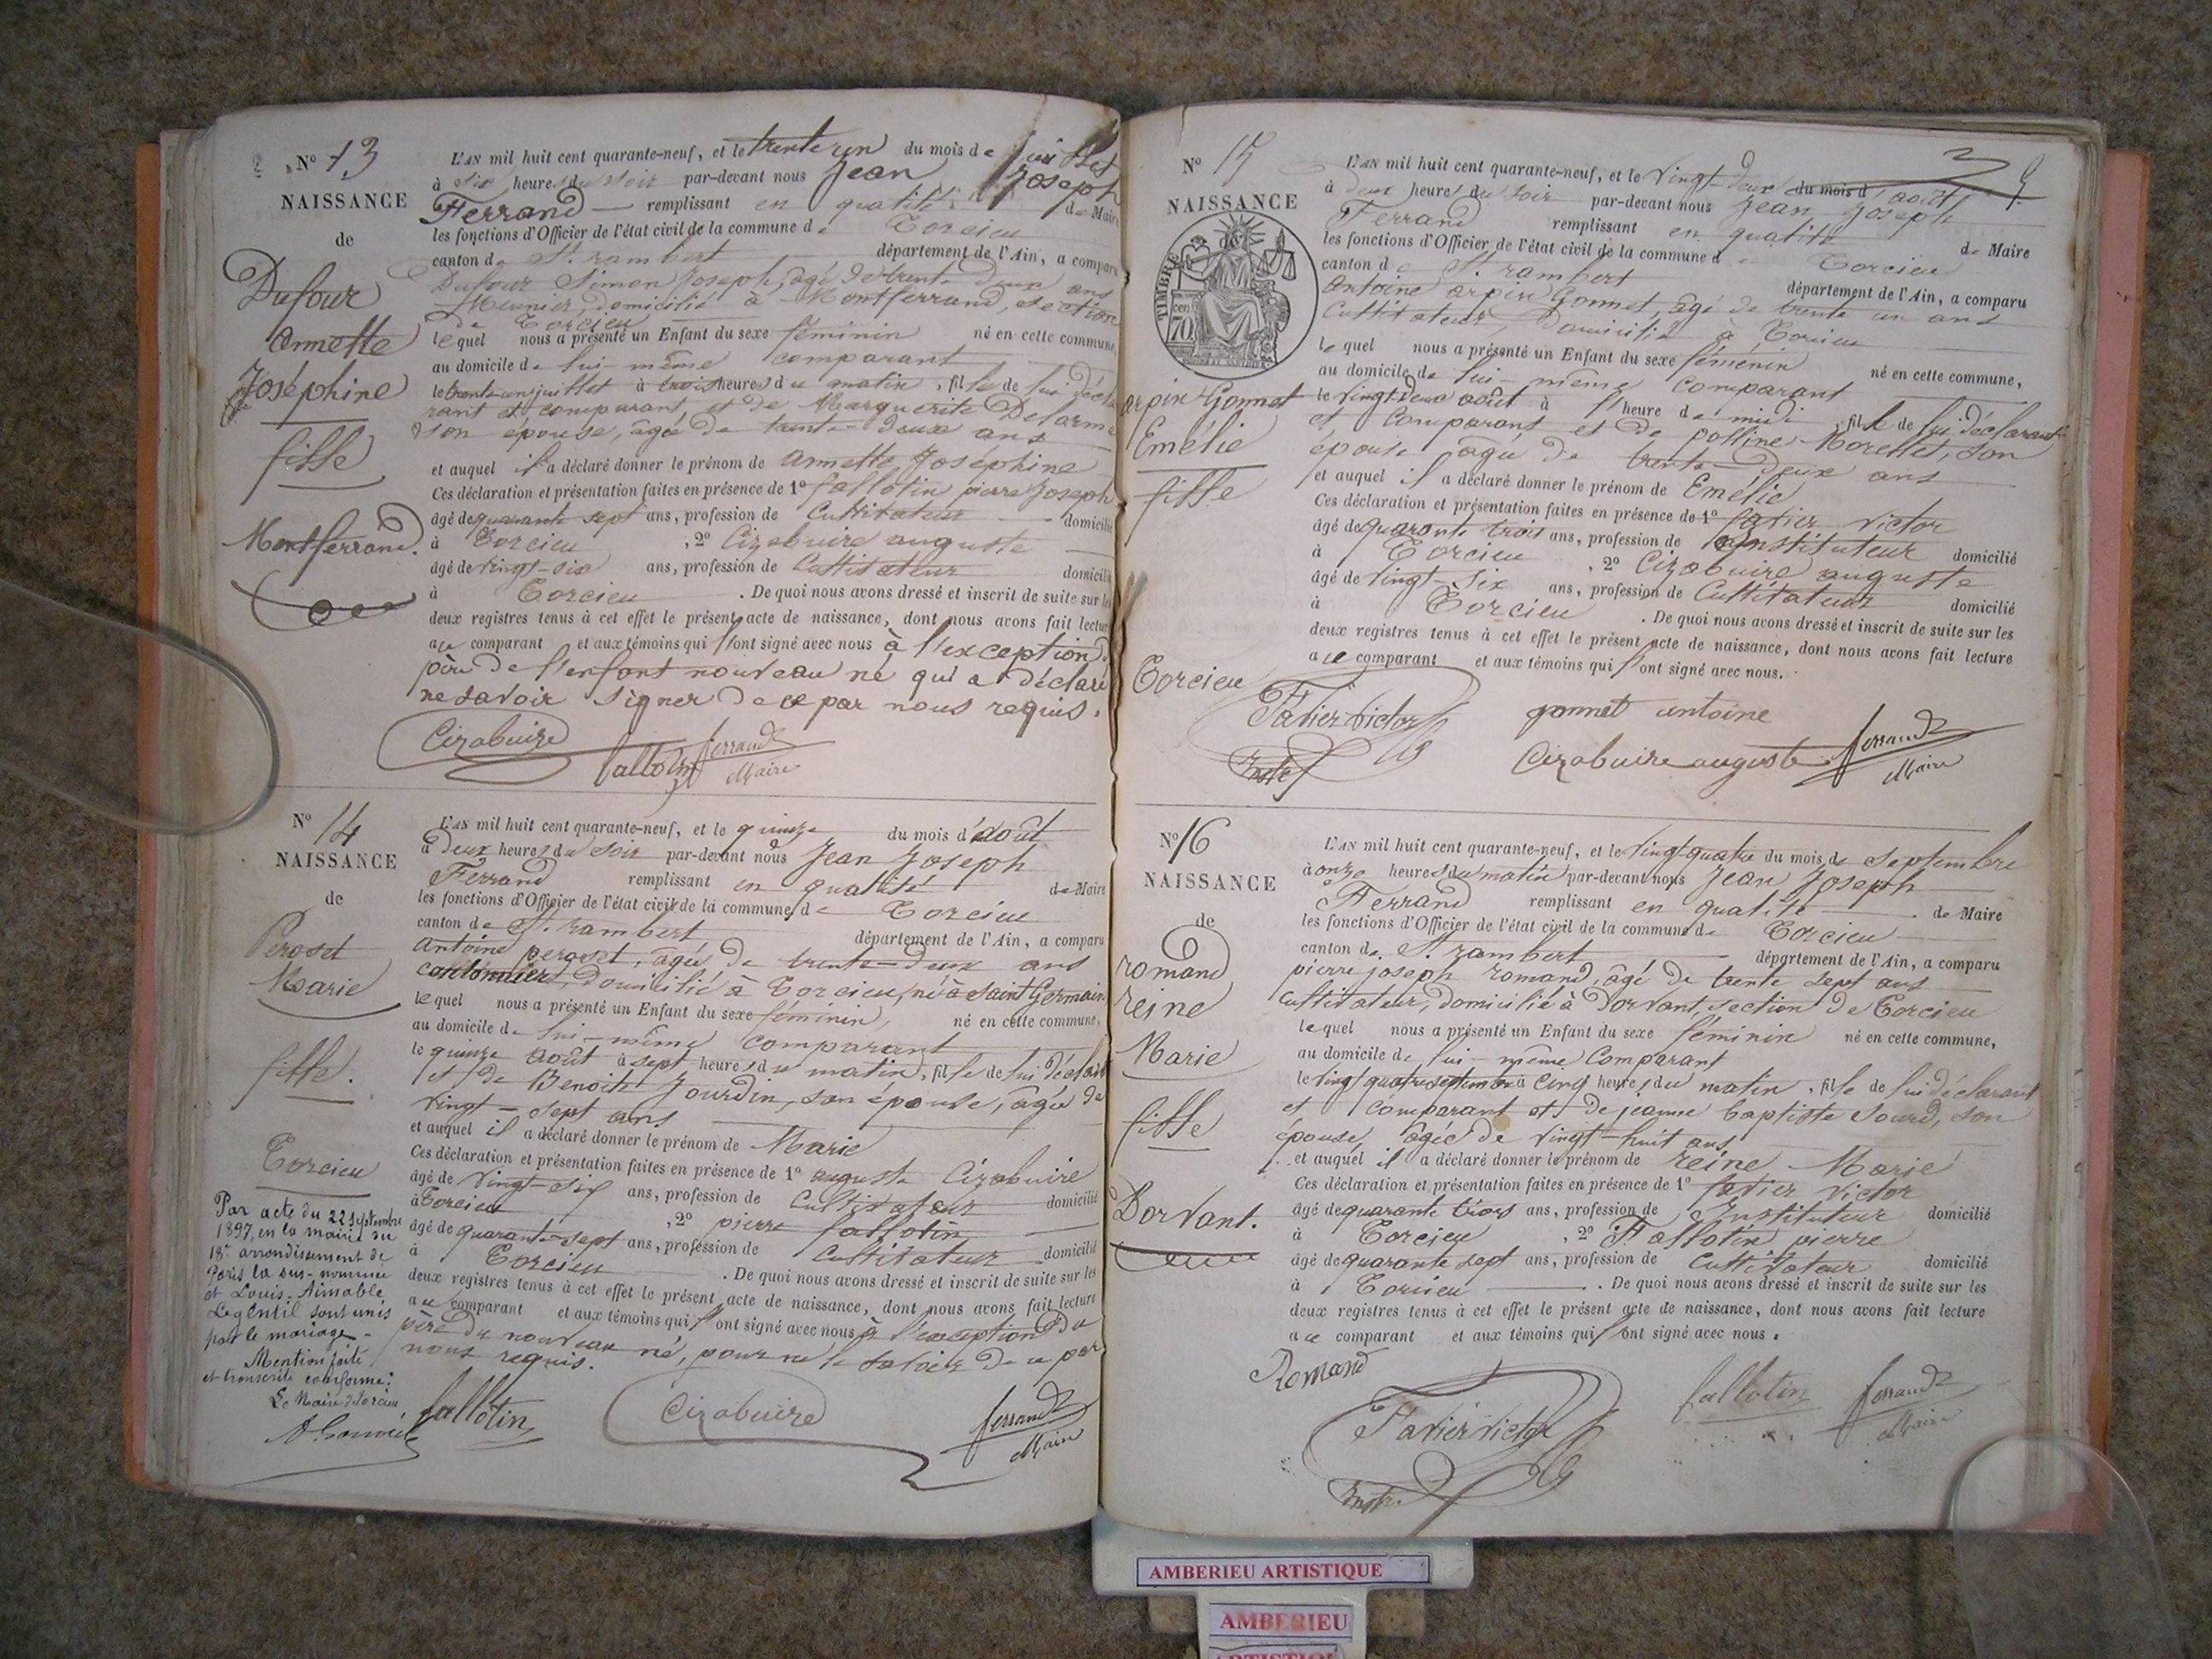 N° 13
NAISSANCE
de
Dufour
Annette
Joséphine
fille
Montferrand.
L'AN mil huit cent quarante-neuf, et le trente un du mois de juillet
à six heures du soir par-devant nous Jean Joseph
Ferrand remplissant en qualité de Maire
les fonctions d'Officier de l'état civil de la commune de Torcieu
canton de St. rambert département de l'Ain, a comparu
Dufour Simon Joseph, âgé de trente-deux ans
Meunier, domicilié à Montferrand, section
de Torcieu
lequel nous a présenté un Enfant du sexe féminin né en cette commune,
au domicile de lui-même comparant
le trente-un juillet à trois heures du matin, fille de lui décla
rant et comparant, et de Marguerite Delorme
son épouse, âgée de trente-deux ans
et auquel il a déclaré donner le prénom de Annette Joséphine
Ces déclaration et présentation faites en présence de 1° fallotin pierre Joseph
âgé de quarante sept ans, profession de Cultivateur domicilié
à Torcieu, 2° Cizabuire auguste
âgé de vingt-six ans, profession de Cultivateur domicilié
à Torcieu. De quoi nous avons dressé et inscrit de suite sur les
deux registres tenus à cet effet le présent acte de naissance, dont nous avons fait lecture
au comparant et aux témoins qui l'ont signé avec nous à l'exception du
père de l'enfant nouveau né qui a déclaré
ne savoir signer de ce par nous requis.
Cizabuire
fallotin
ferrand
Maire
N° 14
NAISSANCE
de
Peroset
Marie
fille.
Torcieu
Par acte du 22 septembre
1897, en la mairie du
18e arrondissement de
Paris la sus-nommée
et Louis-Aimable
Legentil sont unis
par le mariage -
Mention faite
et transcrite conforme:
Le Maire de Torcieu
L'AN mil huit cent quarante-neuf, et le quinze du mois d'août
à deux heures du soir par-devant nous Jean Joseph
Ferrand remplissant en qualité de Maire
les fonctions d'Officier de l'état civil de la commune de Torcieu
canton de St. rambert département de l'Ain, a comparu
antoine peroset, âgée de trente-deux ans
cantonnier, domicilié à Torcieu, né à Saint Germain
lequel nous a présenté un Enfant du sexe féminin, né en cette commune,
au domicile de lui-même comparant
le quinze août à sept heures du matin, fille de lui déclarant
et de Benoite Jourdin, son épouse, âgée de
vingt-sept ans
et auquel il a déclaré donner le prénom de Marie
Ces déclaration et présentation faites en présence de 1° auguste Cizabuire
âgé de vingt-six ans, profession de Cultivateur domicilié
à Torcieu, 2° pierre fallotin
âgé de quarante-sept ans, profession de Cultivateur domicilié
à Torcieu. De quoi nous avons dressé et inscrit de suite sur les
deux registres tenus à cet effet le présent acte de naissance, dont nous avons fait lecture
au comparant et aux témoins qui l'ont signé avec nous à l'exception du
père du nouveau né, pour ne le savoir de ce par
nous requis.
fallotin
Cizabuire
ferrand
Maire
N° 15
NAISSANCE
TIMBRE
70
arpin Gonnet
Emélie
fille
Torcieu
L'AN mil huit cent quarante-neuf, et le vingt-deux du mois d'août
à deux heures du soir par-devant nous Jean Joseph
Ferrand remplissant en qualité de Maire
les fonctions d'Officier de l'état civil de la commune de Torcieu
canton de St. rambert département de l'Ain, a comparu
Antoine arpin Gonnet, âgé de trente un ans
Cultivateur, domicilié à Torcieu
lequel nous a présenté un Enfant du sexe féminin né en cette commune,
au domicile de lui-même comparant
le vingt-deux août à l'heure de midi, fille de lui déclarant
et comparant et de polline Morellet, son
épouse âgée de trente-deux ans
et auquel il a déclaré donner le prénom de Emélie
Ces déclaration et présentation faites en présence de 1° favier victor
âgé de quarante trois ans, profession de Instituteur domicilié
à Torcieu, 2° Cizabuire auguste
âgé de vingt-six ans, profession de Cultivateur domicilié
à Torcieu. De quoi nous avons dressé et inscrit de suite sur les
deux registres tenus à cet effet le présent acte de naissance, dont nous avons fait lecture
au comparant et aux témoins qui l'ont signé avec nous.
Favier victor
gonnet antoine
Cizabuire auguste
ferrand
Maire
N° 16
NAISSANCE
de
romand
reine
Marie
fille
Dorvant.
L'AN mil huit cent quarante-neuf, et le vingt quatre du mois de septembre
à onze heures du matin par-devant nous Jean Joseph
Ferrand remplissant en qualité de Maire
les fonctions d'Officier de l'état civil de la commune de Torcieu
canton de St. rambert département de l'Ain, a comparu
pierre joseph romand, âgé de trente sept ans
cultivateur, domicilié à Dorvant, section de Torcieu
lequel nous a présenté un Enfant du sexe féminin né en cette commune,
au domicile de lui-même Comparant
le vingt quatre septembre à cinq heures du matin, fille de lui déclarant
et comparant et de jeanne baptiste Sourd, son
épouse, âgée de vingt-huit ans
et auquel il a déclaré donner le prénom de reine Marie
Ces déclaration et présentation faites en présence de 1° favier victor
âgé de quarante trois ans, profession de Instituteur domicilié
à Torcieu, 2° Fallotin pierre
âgé de quarante sept ans, profession de Cultivateur domicilié
à Torcieu. De quoi nous avons dressé et inscrit de suite sur les
deux registres tenus à cet effet le présent acte de naissance, dont nous avons fait lecture
au comparant et aux témoins qui l'ont signé avec nous.
Romand
Favier victor
fallotin
ferrand
Maire
AMBERIEU ARTISTIQUE
AMBERIEU
ARTISTIQUE